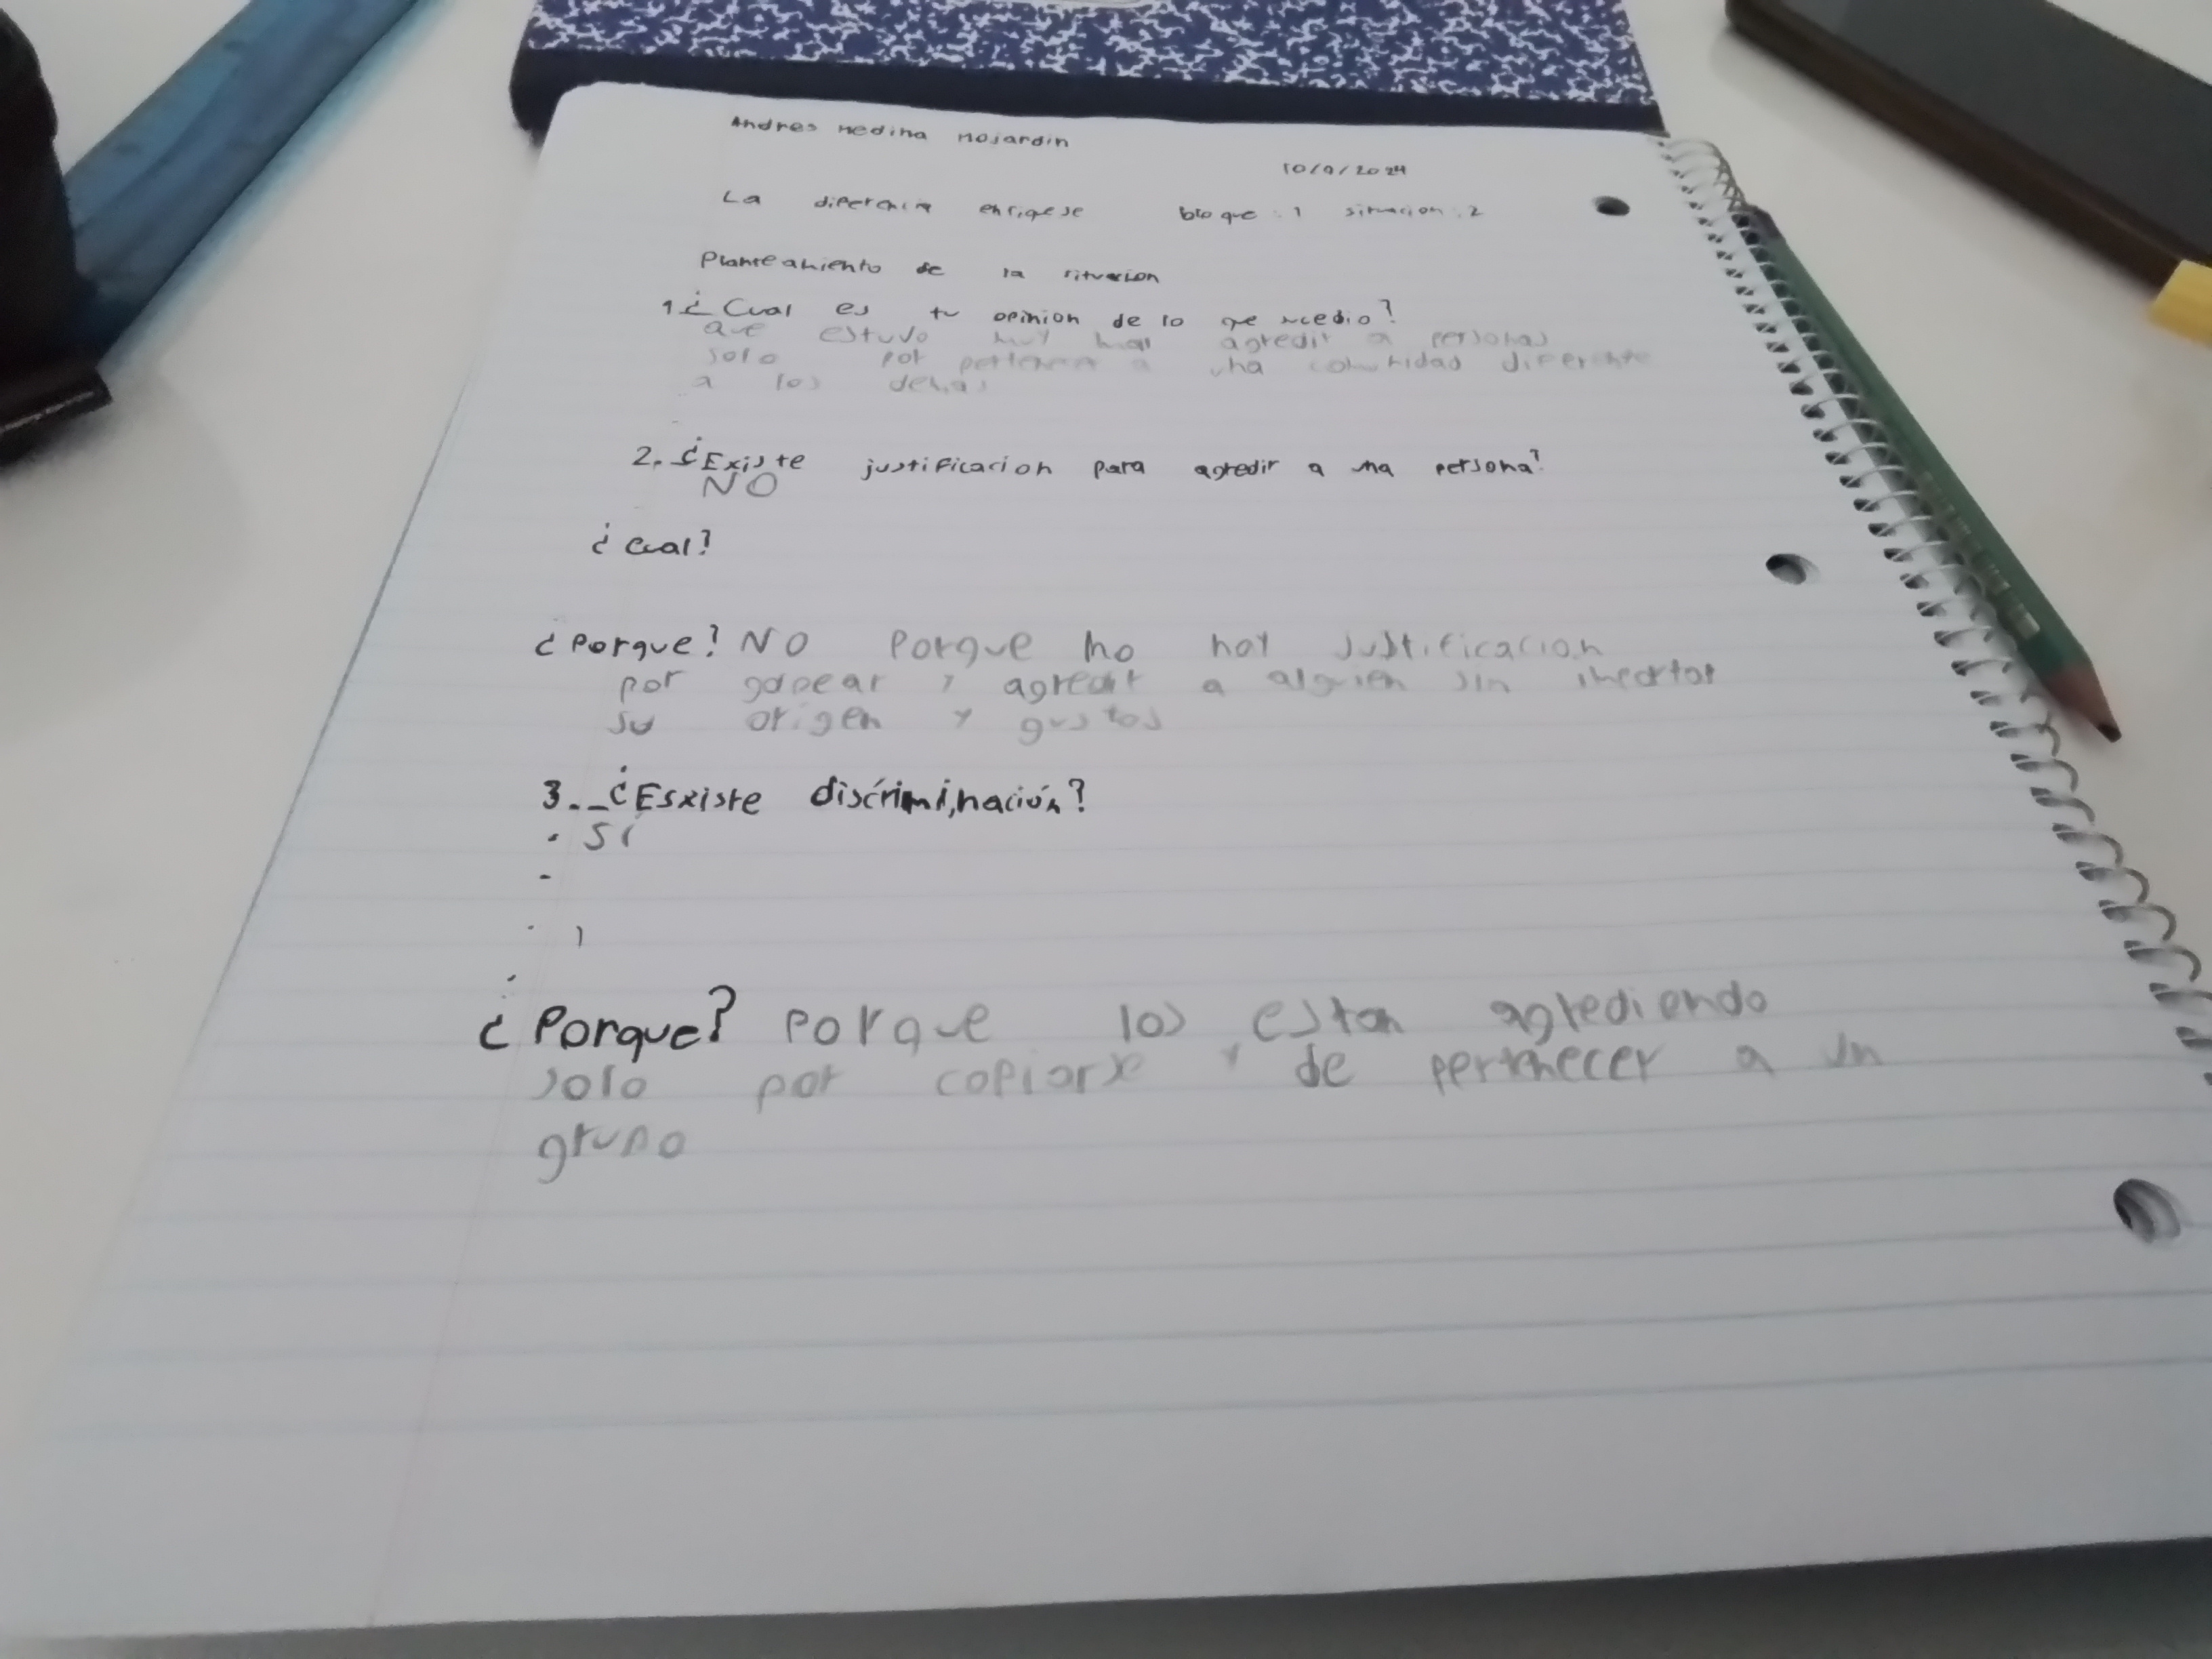 Andres Medina Mojardin
10/9/2024
La diferencia enriqese bloque: 1 situacion: 2
Planteamiento de la situacion
1¿Cual es tu opinion de lo que sucedio?
que estuvo muy mal agredir a personas
solo por pertenecer a una comunidad diferente
a los demas
2. ¿Existe justificacion para agredir a una persona?
NO
¿Cual?
¿Porque? NO Porque no hay justificacion
por golpear y agredir a alguien sin
su origen y gustos
3._¿Esxiste discriminación?
· Sí
-
¿Porque? Porque los estan agrediendo
solo por copiarse y de pertenecer a un
grupo